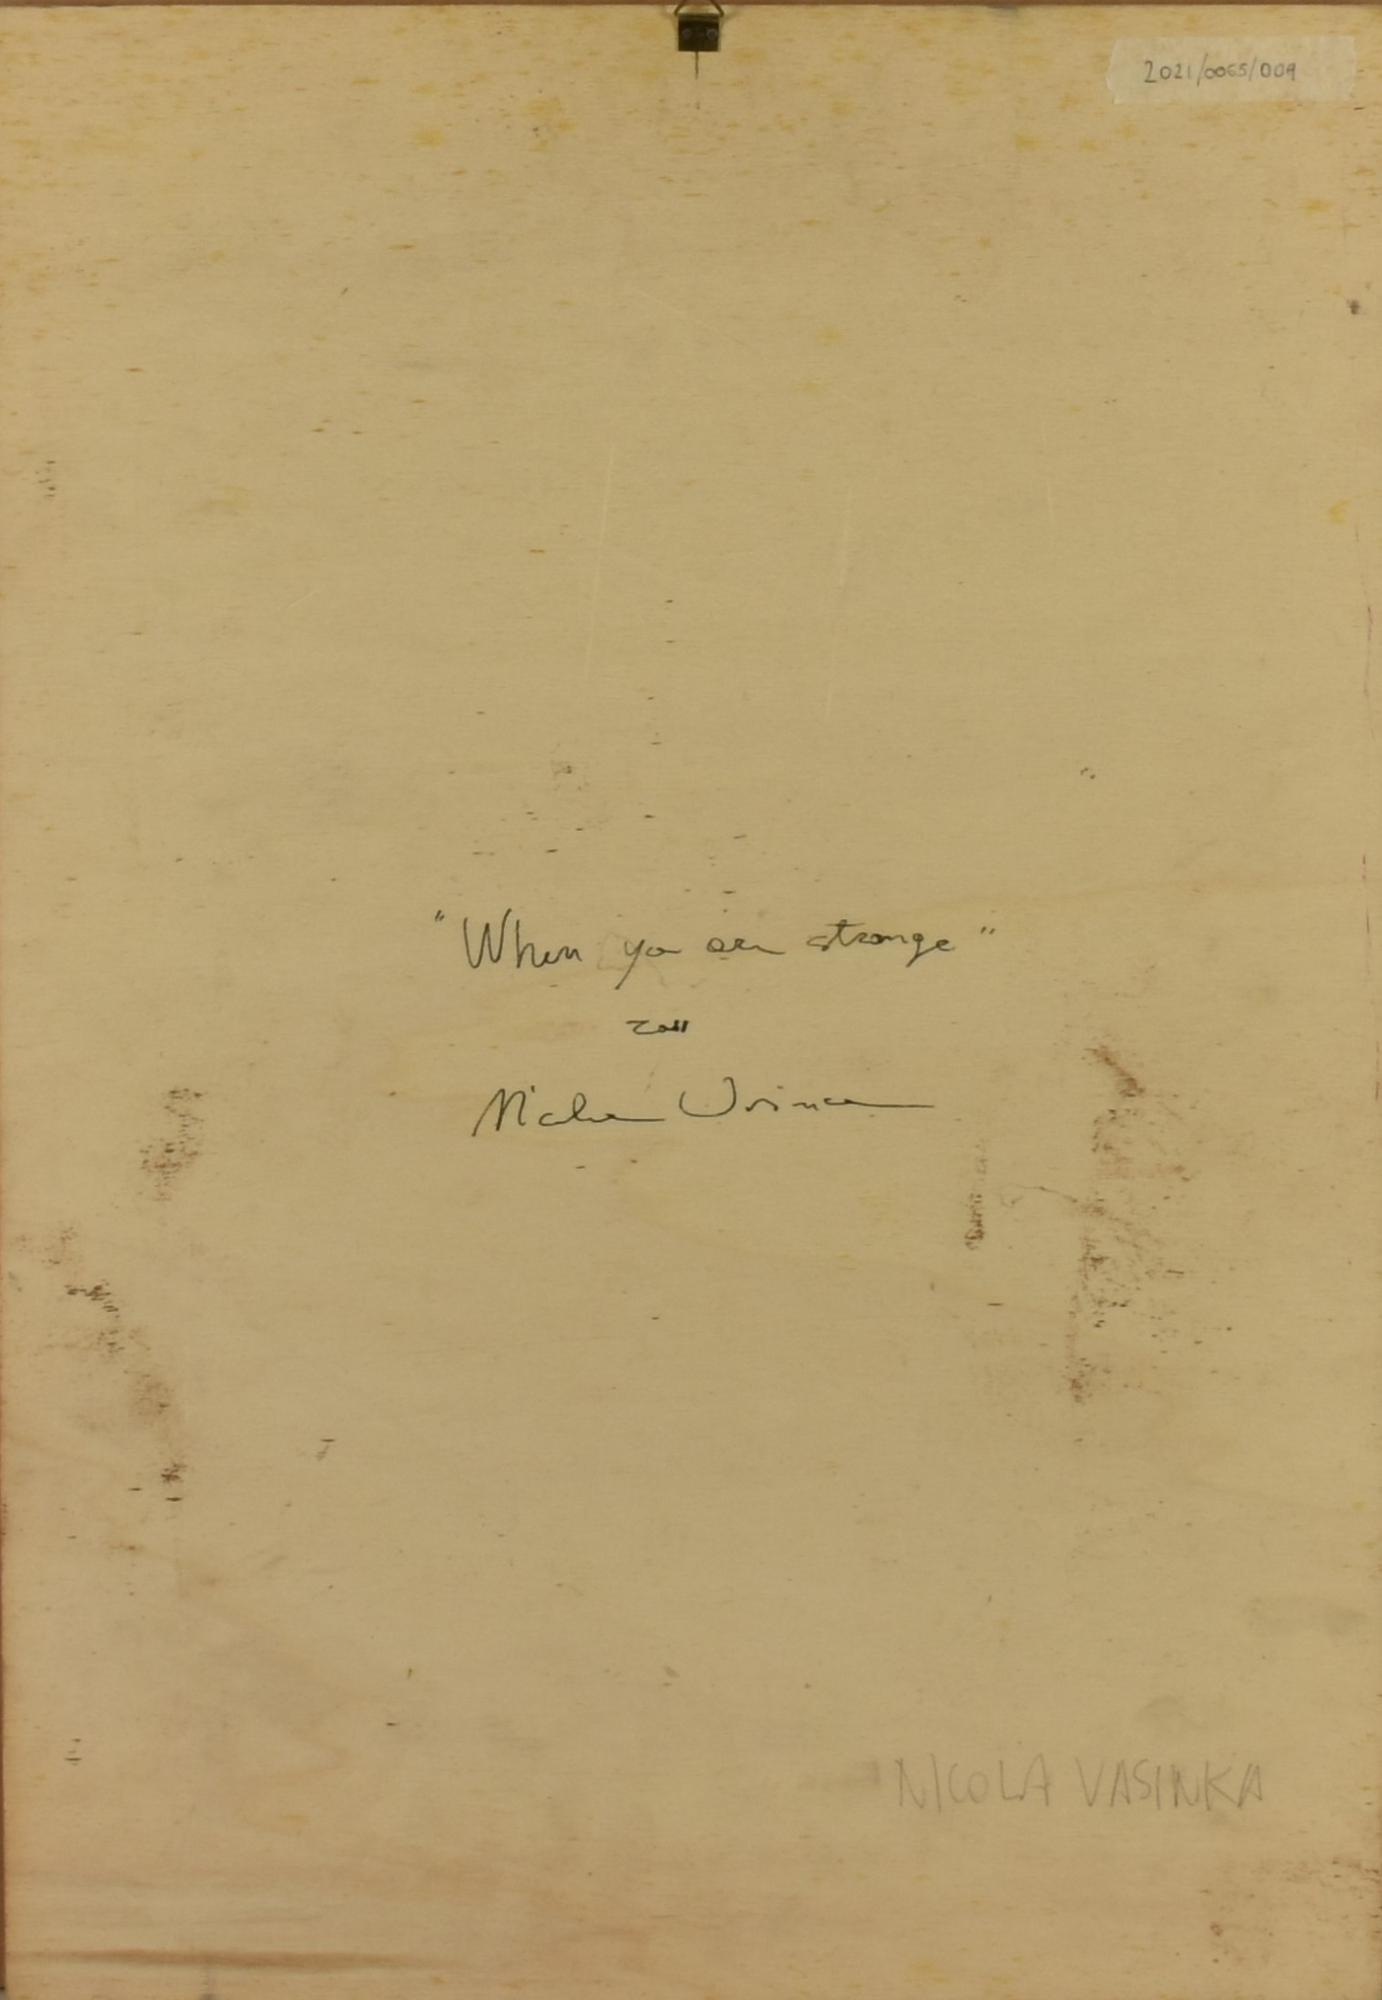 2021/0065/009
"When you are strange"
2011
NICOLA VASINKA